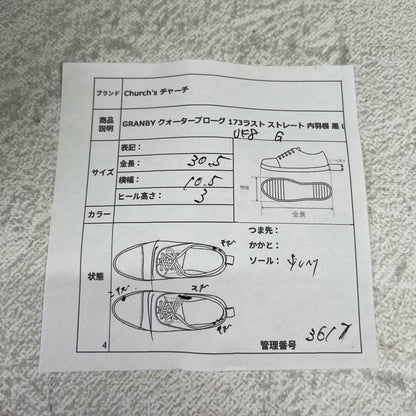 ブランド Church's チャーチ
商品説明 GRANBY クォーターブローグ 173ラスト ストレート 内羽根 黒 U
UK8 G
サイズ
表記：
全長： 30.5
横幅： 10.5
ヒール高さ： 3
ヒール高さ
横幅
全長
カラー
状態
つま先：
かかと：
ソール：
4
管理番号 3617